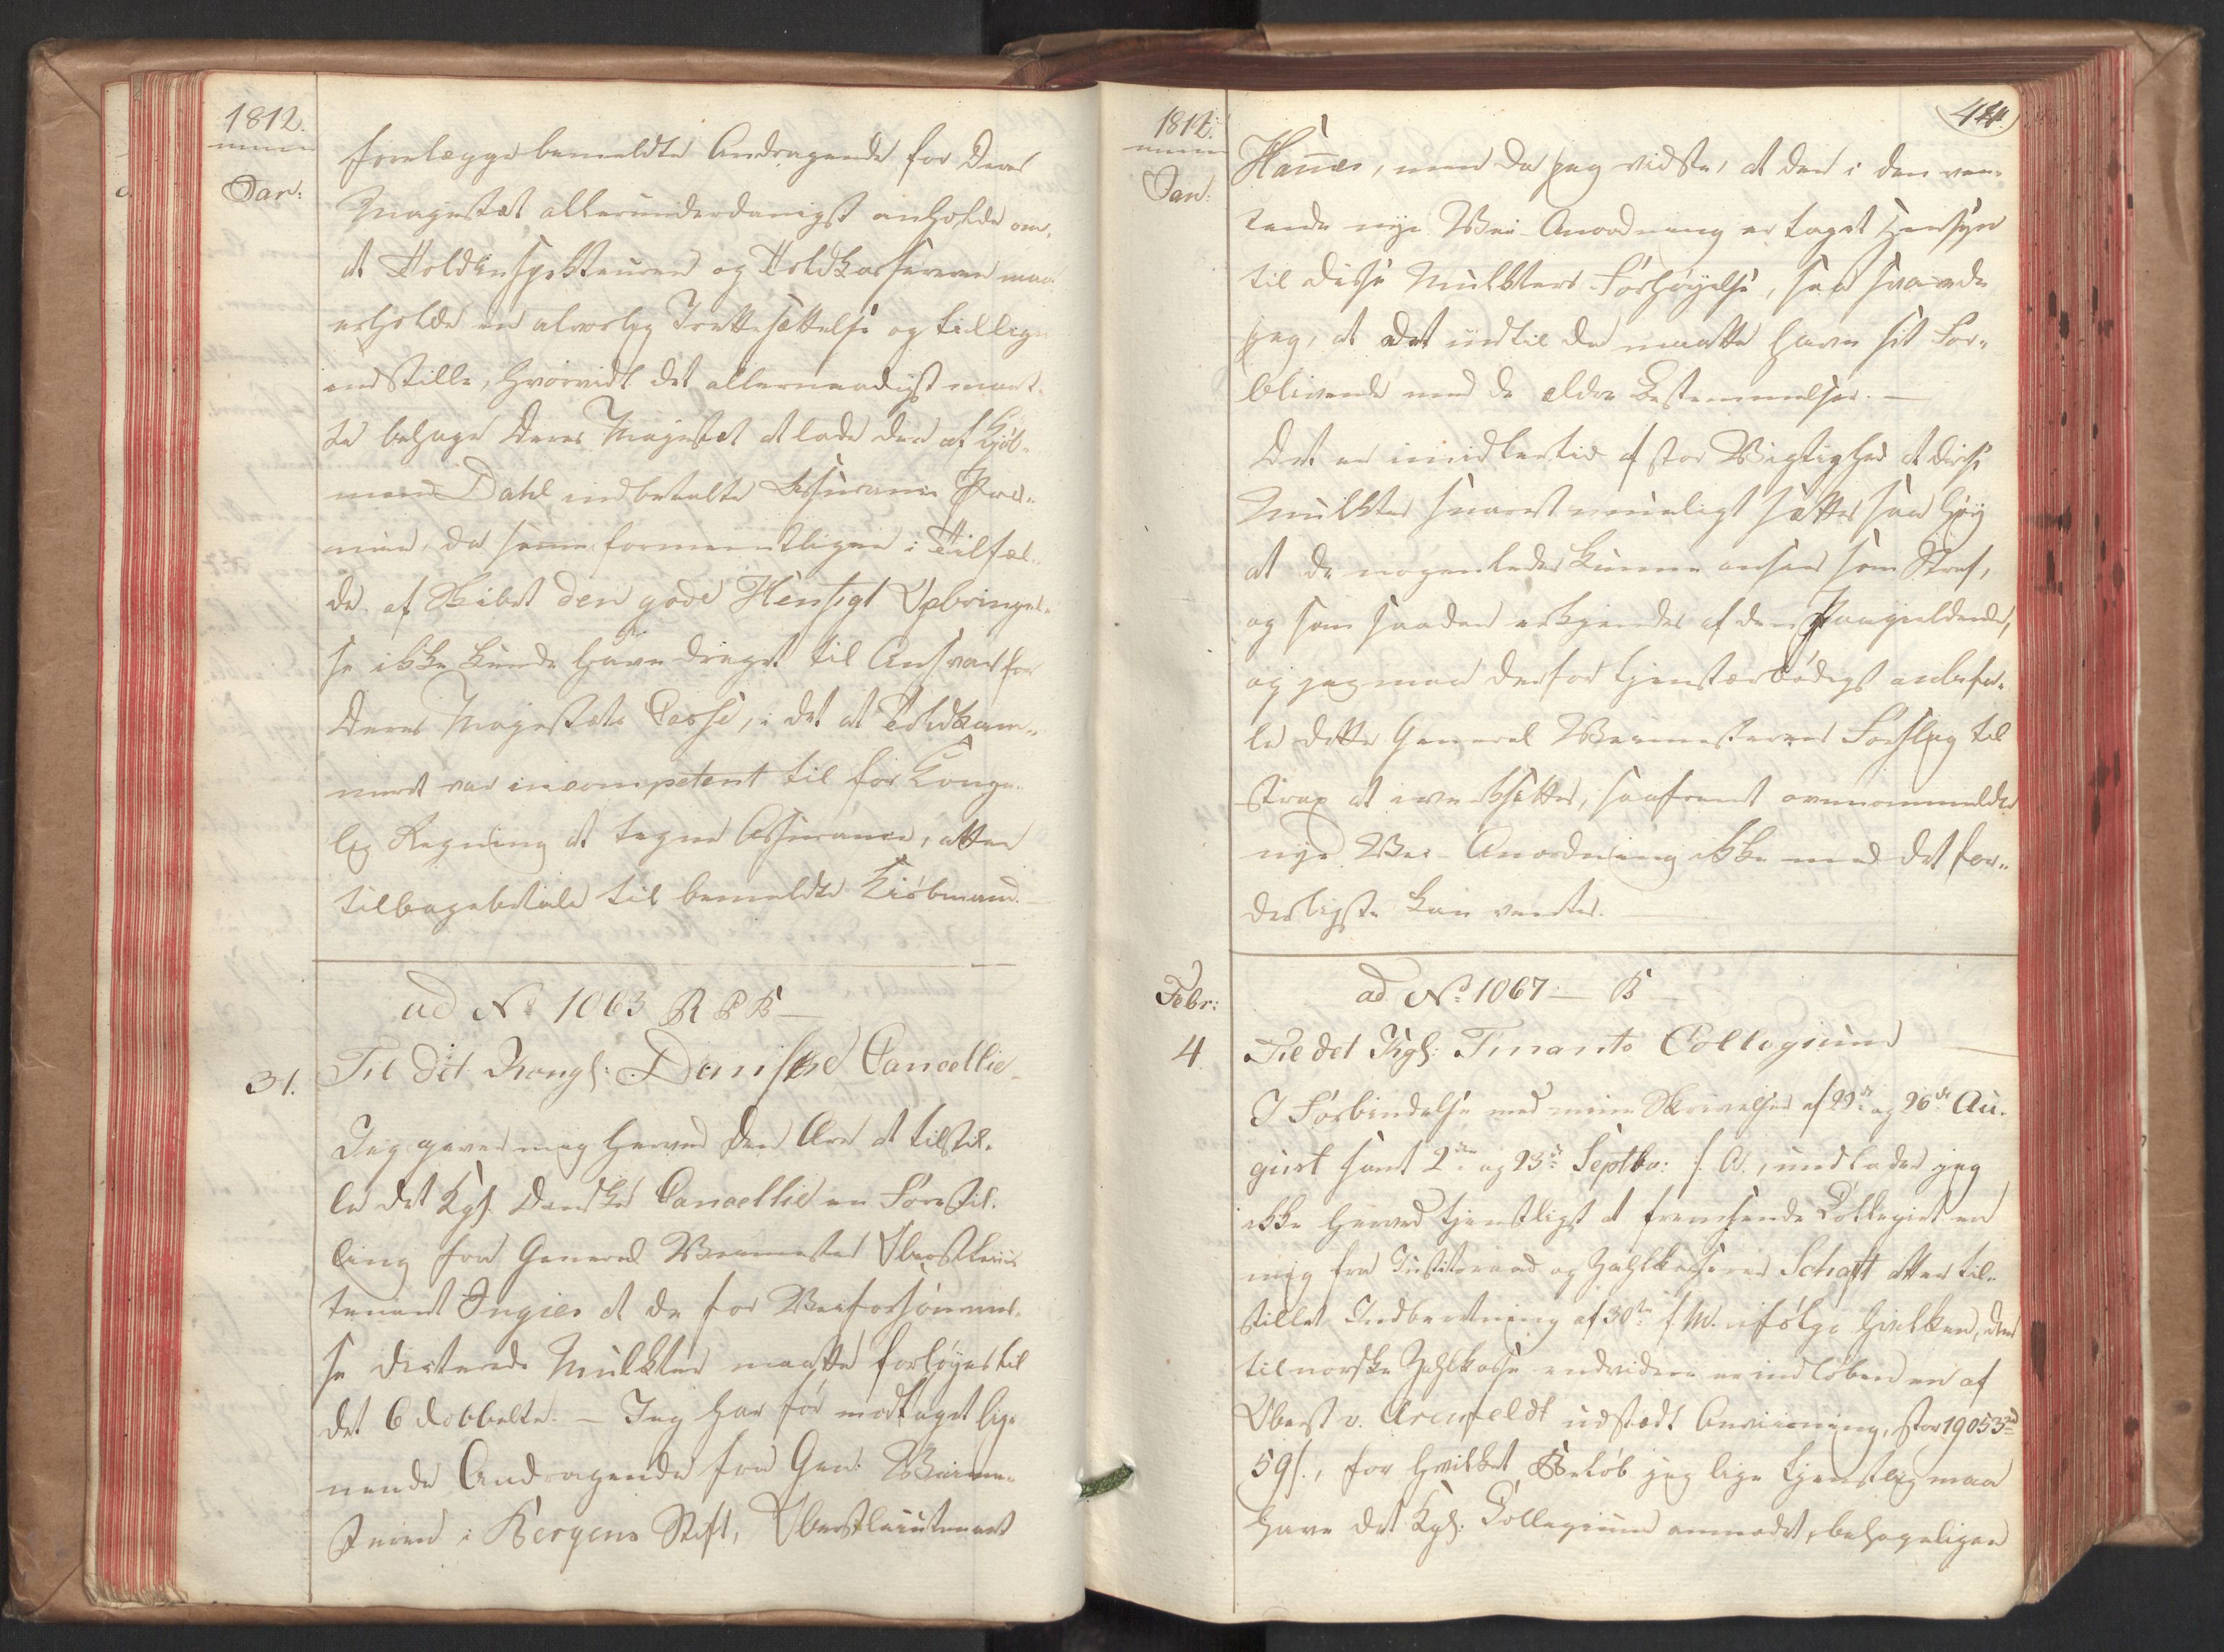 1812.
Jan:
forelægge bemeldte Andragende for Deres
Majestæt allerunderdanigst anholde om,
at Toldinspekteuren og Toldkassereren maa
erholde en alvorlig Irettesættelse og tillige
indstille, hvorvidt det allernaadigst maat-
te behage Deres Majestæt at lade den af Kjøb-
mand Dahl indbetalte Assurance Præ-
mie, da samme formeentligen i Tilfæl-
de af Skibet den gode Hensigt Opbringel-
se ikke kunde have draget til Ansvar for
Deres Majestæts Casse, i det at Toldkam-
meret var incompetent til for Konge-
lig Regning at tegne Assurance, atter
tilbagebetale til bemeldte Kiøbmand. —
ad No 1063 R P B —
31. Til det Kongl: Danske Cancellie
Jeg giver mig herved den Ære at tilstil-
le det Kgl. Danske Cancellie en Forestil-
ling fra General Veimester Oberstlieu-
tenant Ingier at de for Veiforsømmel-
se dicterede Mulkter maatte forhøyes til
det 6 dobbelte. — Jeg har før modtaget lig-
nende Andragende fra Gen: Veime-
steren i Bergens Stift, Oberstlieutenant
1812.
Jan:
414.
Hannes, men da jeg vidste, at der i den ven-
tende nye Vei Anordning er taget Hensyn
til disse Mulkters Forhøyelse, saa svarede
jeg, at det indtil da maatte have sit For-
blivende med de ældre Bestemmelser. —
Det er imidlertid af stor Vigtighed at disse
Mulkter snarest mueligt sættes saa høy
at de nogenledes kunne ansees som Straf,
og som saadan erkjendes af den Paagieldende,
og jeg maa derfor tjenstærbødigst anbefa-
le dette General Veimesterens Forslag til
strax at iværksættes, saafremt ovenommeldte
nye Vei-Anordning ikke med det for-
derligste kan ventes.
Febr:
ad No 1067 — B —
4 Til det Kgl: Finants Collegium
I Forbindelse med mine Skrivelser af 22de og 26de Au-
gust samt 2den og 23de Septbr: f. A., undlader jeg
ikke herved tjenstligst at fremsende Collegiet en
mig fra Justitsraad og Zahlkasserer Schaft atter til-
stillet Indberetning af 30te f. M. ifølge hvilken, den
til norske Zahlkasse endvidere er indløben en af
Oberst v. Arenfeldt udstædt Anviisning, stor 19053 rd
59 s., for hvilket Beløb jeg lige tjenstlig maa
have det Kgl. Collegium anmodet, behageligen